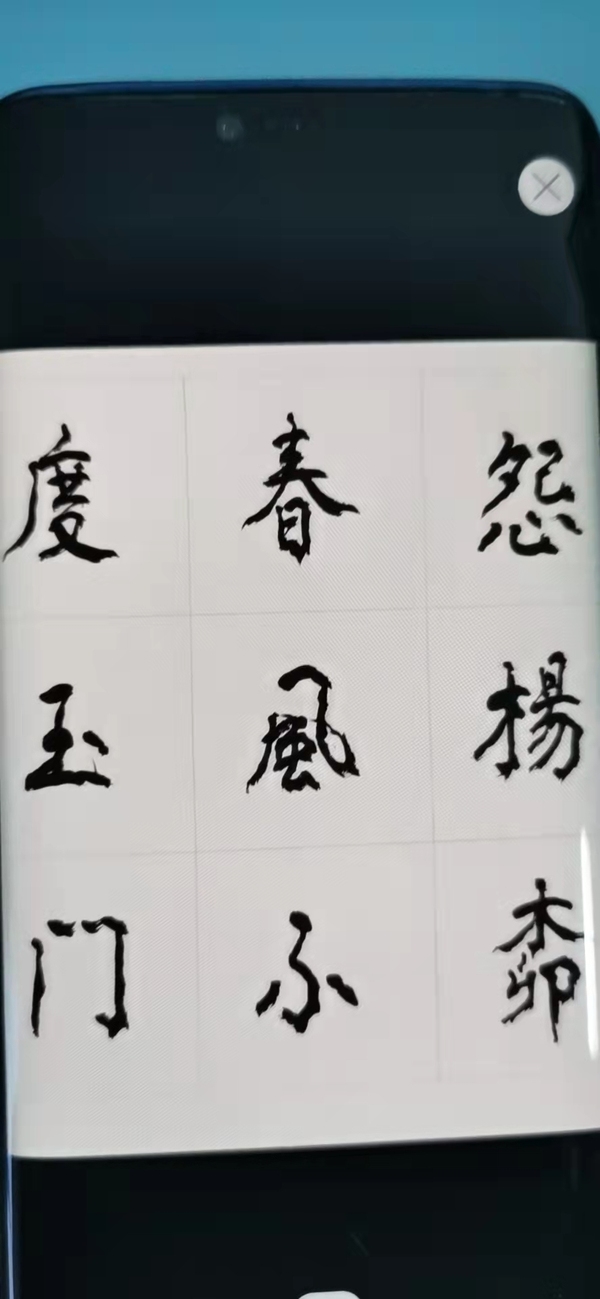 怨楊桺
春風不
度玉门